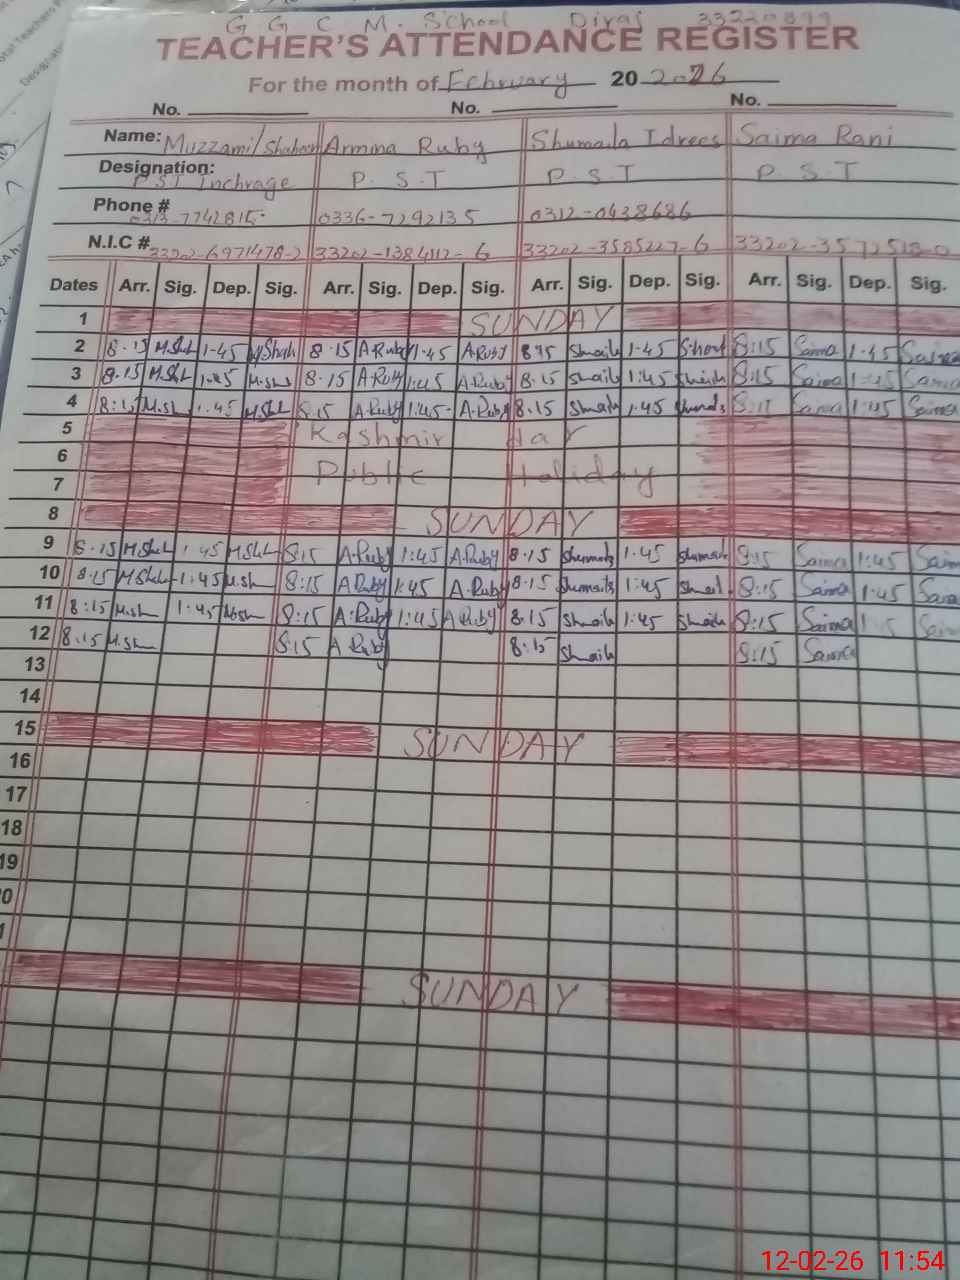 G G C M. School Diraj 33220899
TEACHER'S ATTENDANCE REGISTER
For the month of February 20 2026
No. No. No.
Name: Muzzami/Shaheen Armina Ruby Shumaila Idrees Saima Rani
Designation: P.S.T Inchrage P. S. T P. S. T P. S. T
Phone # 0313-7742815- 0336-7292135 0312-0438686
N.I.C # 33202-6971478-2 33202-1384112-6 33202-3585227-6 33202-3572518-0
Dates Arr. Sig. Dep. Sig. Arr. Sig. Dep. Sig. Arr. Sig. Dep. Sig. Arr. Sig. Dep. Sig.
1 SUNDAY
2 8.15 M.Shah 1-45 M Shah 8.15 A.Ruby 1-45 A.Ruby 815 Shmaila 1-45 8:15 Saima 1.45 Saima
3 8.15 M.Shh 1.45 M.Sh 8.15 A.Ruby 1:45 A.Ruby 8.15 Shmaila 1:45 Shmaila 8:15 Saima 1:45 Saima
4 8:15 M.Sh 1.45 M.Shh 8:15 A.Ruby 1:45- A.Ruby 8.15 Shmaila 1.45 8:15 Saima 1:45 Saima
5 Kashmir day
6
7 Public Holiday
8 SUNDAY
9 8.15 M.Shah 1.45 M.Shh 8:15 A.Ruby 1:45 A.Ruby 8.15 Shumaila 1.45 Shumaila 8:15 Saima 1:45 Saim
10 8:15 M.Shah 1:45 M.Sh 8:15 A.Ruby 1:45 A.Ruby 8.15 Shumaila 1:45 8:15 Saima 1:45 Saima
11 8:15 M.Sh 1:45 M.Sh 8:15 A.Ruby 1:45 A.Ruby 8.15 Shmaila 1:45 Shmaila 8:15 Saima 1:45 Saim
12 8:15 M.Sh 8:15 A Ruby 8:15 Shmaila 8:15 Saima
13
14
15 SUNDAY
16
17
18
19
0
1
SUNDAY
12-02-26 11:54